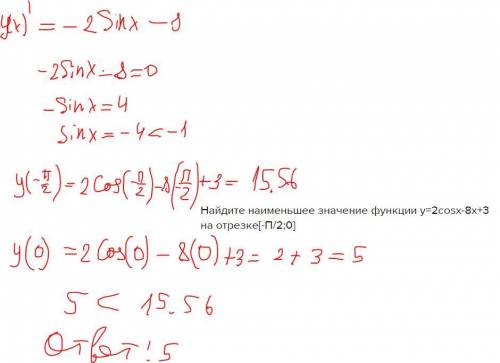 y(x)' = -2Sinx - 8
-2Sinx - 8 = 0
-Sinx = 4
Sinx = -4 < -1
y(-π/2) = 2Cos(-π/2) - 8(-π/2) + 3 = 15.56
Найдите наименьшее значение функции y=2cosx-8x+3
на отрезке[-П/2;0]
y(0) = 2Cos(0) - 8(0) + 3 = 2 + 3 = 5
5 < 15.56
Ответ: 5